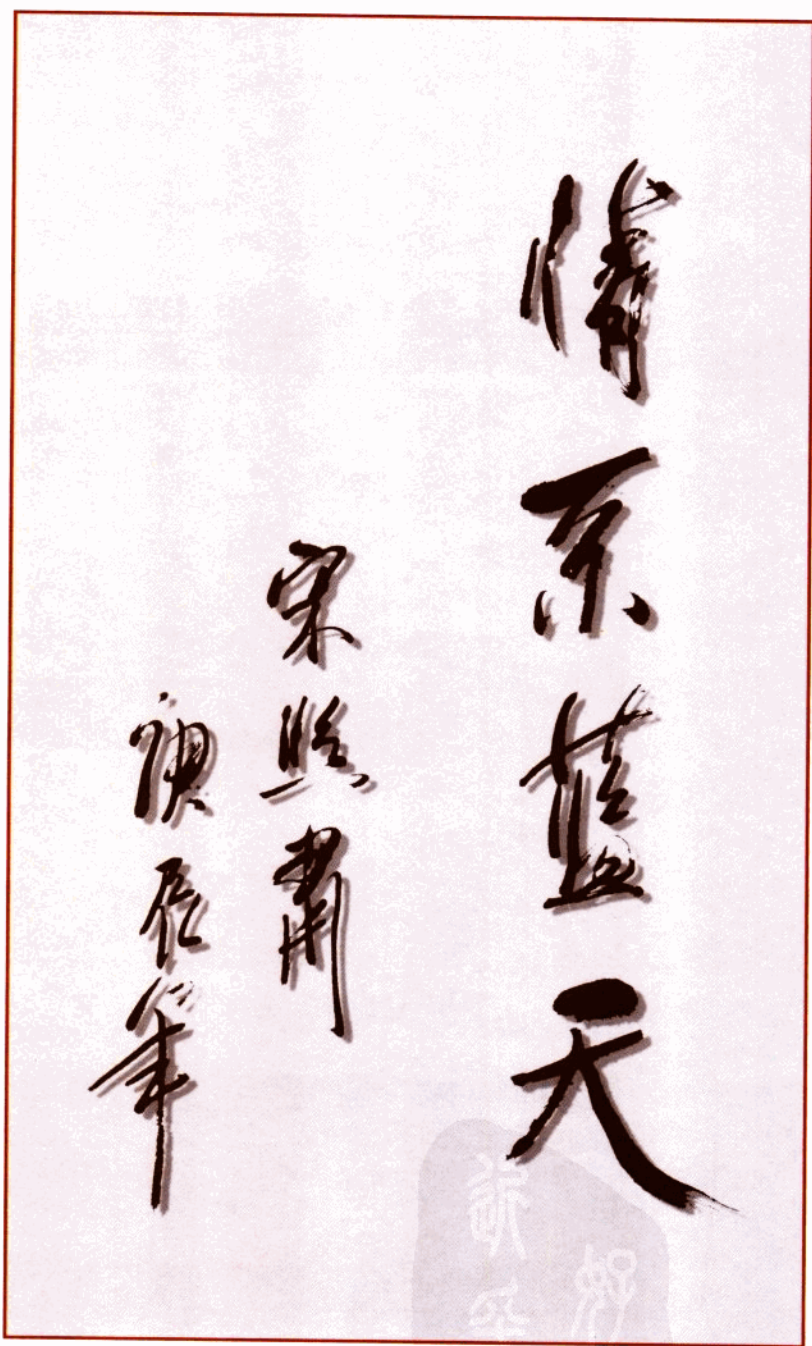 情系蓝天
宋照肃
庚辰年